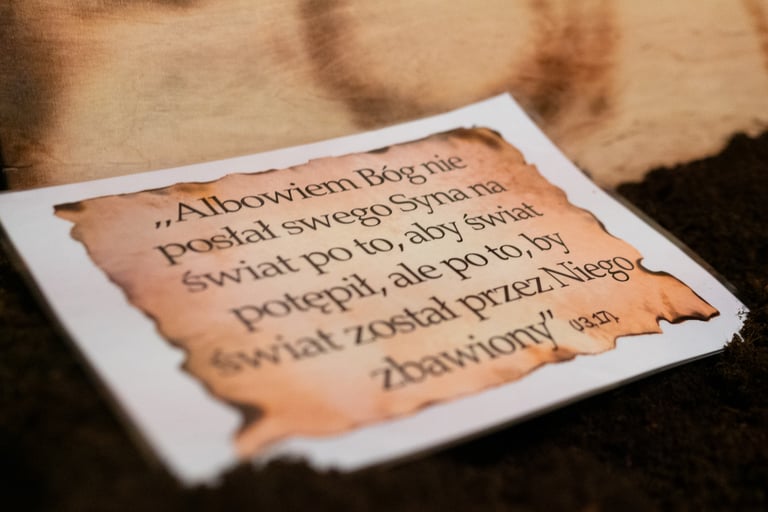 „Albowiem Bóg nie
posłał swego Syna na
świat po to, aby świat
potępił, ale po to, by
świat został przez Niego
zbawiony” (J 3.17).